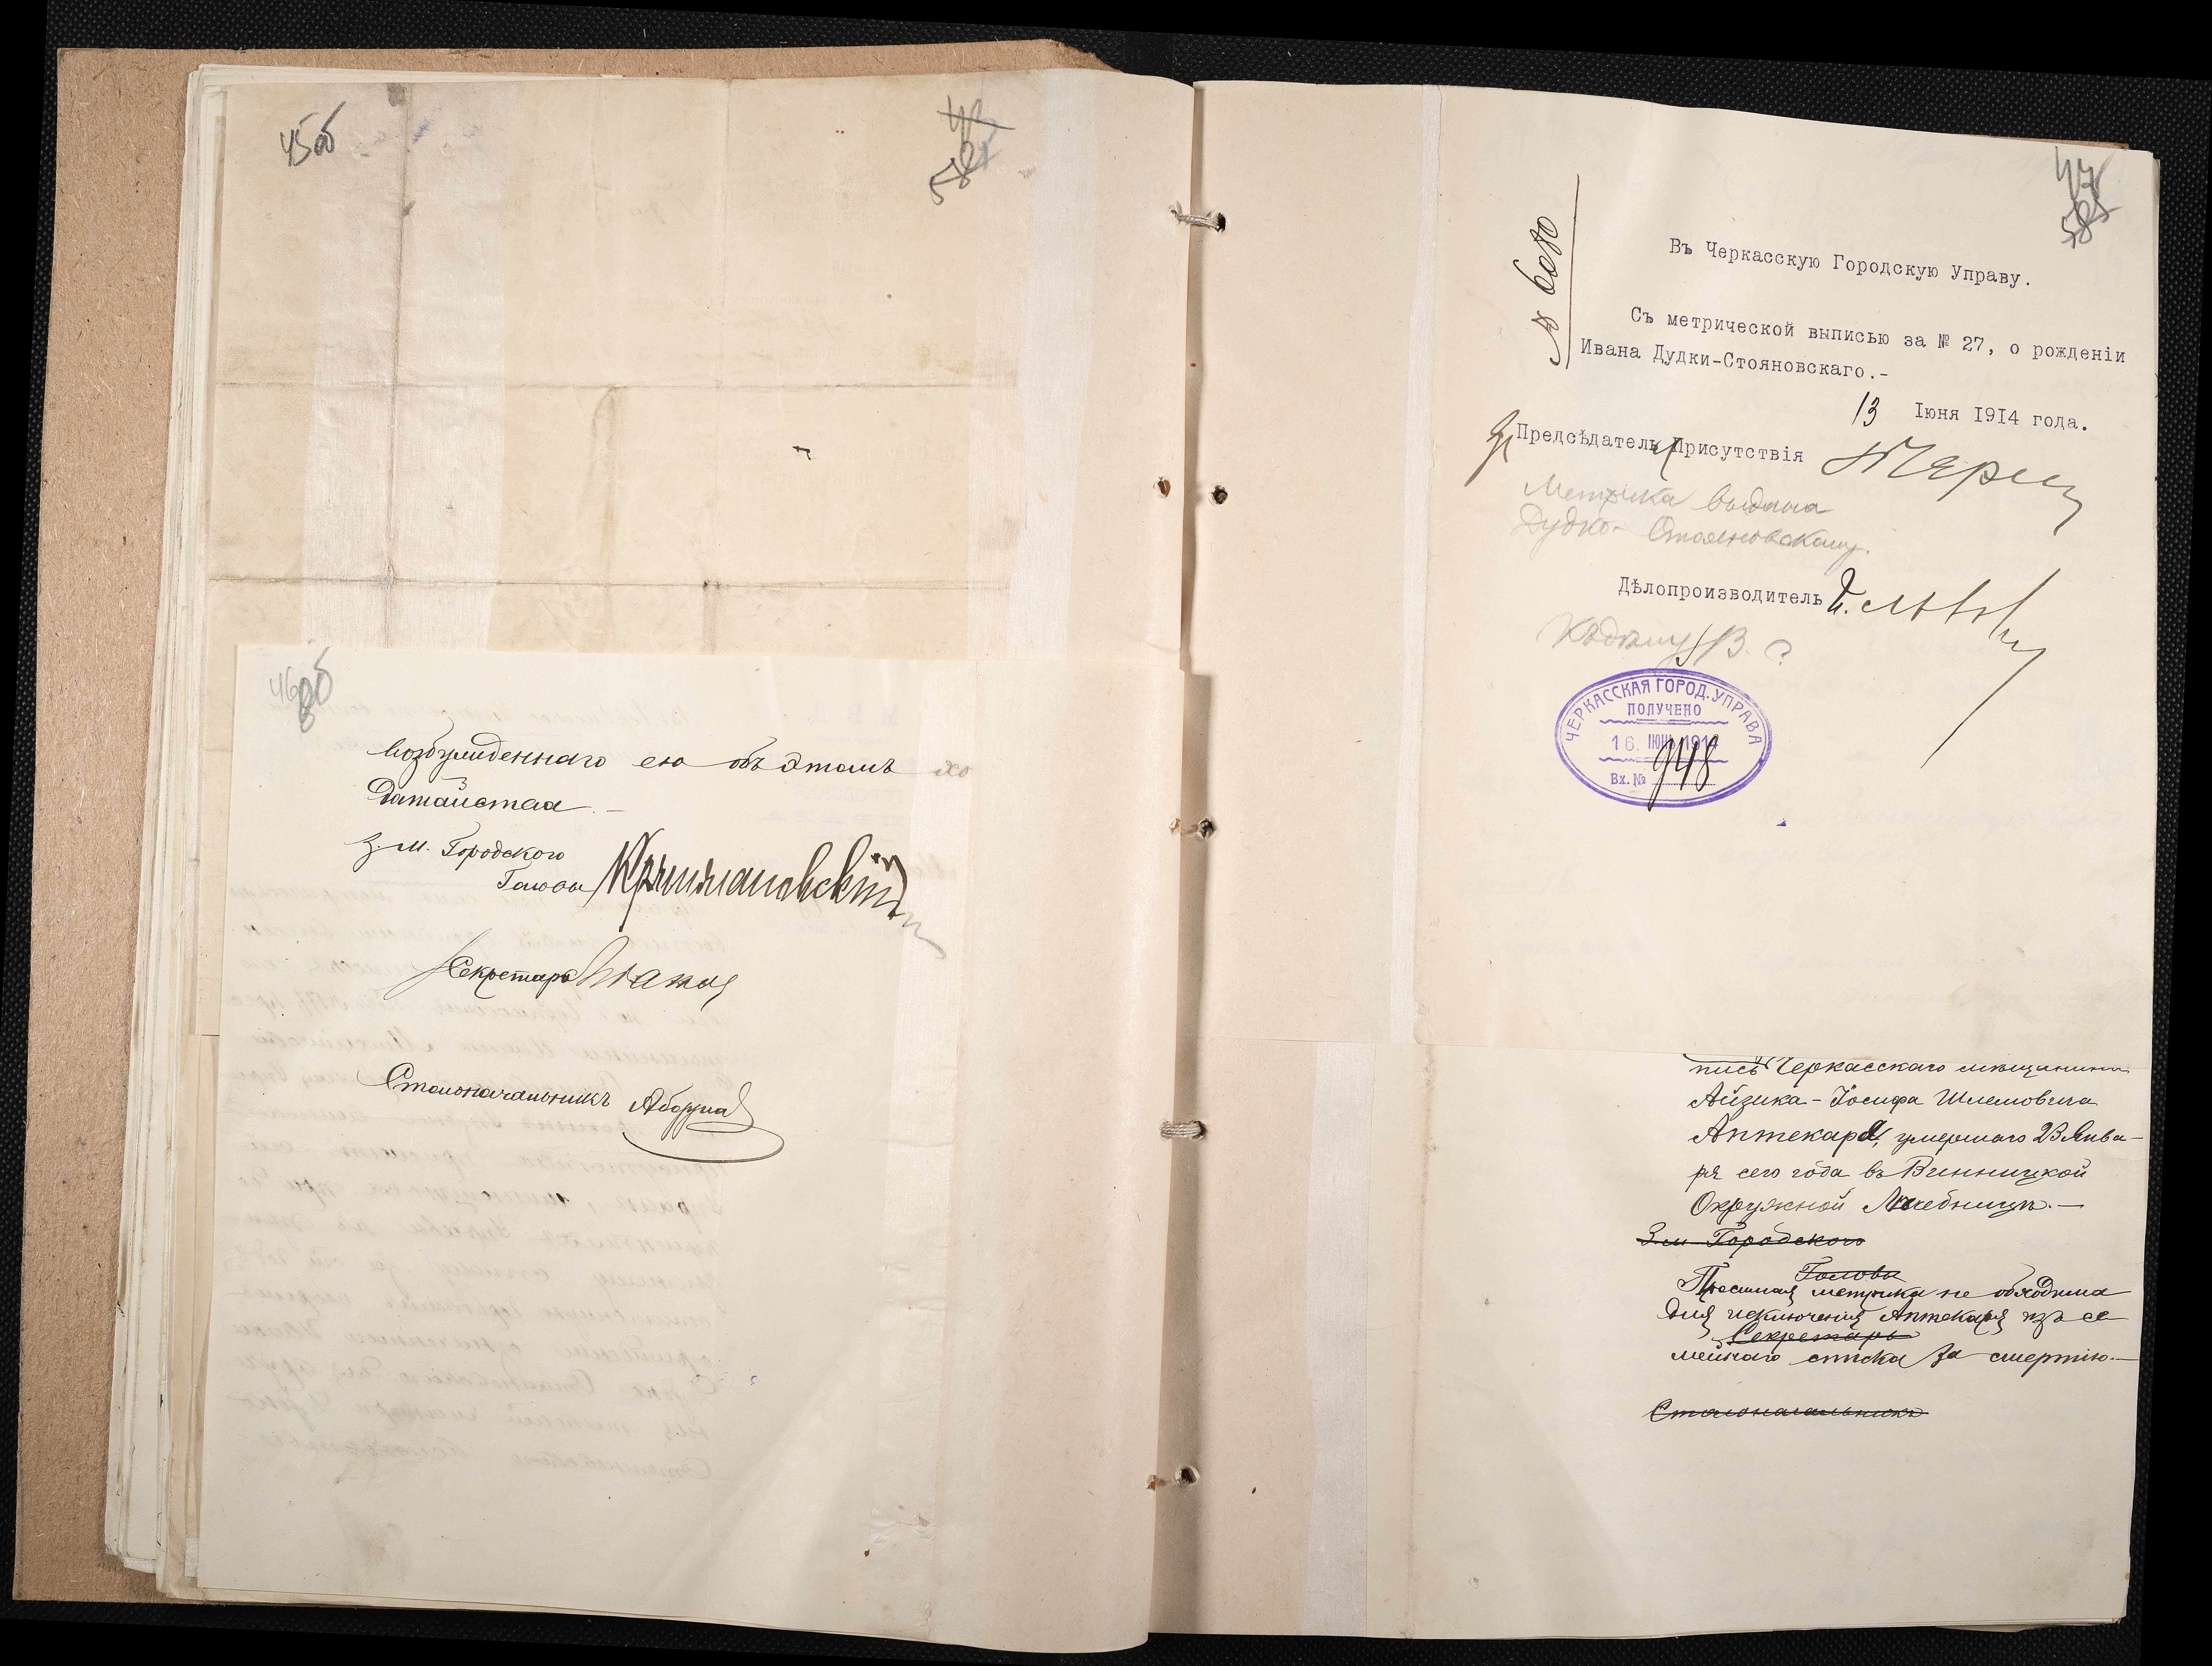 45об
46об
возбужденнаго ею объ этомъ хо
датайства.—
З. м. Городского
Головы
Секретарь
Столоначальникъ
47
Въ Черкасскую Городскую Управу.
Съ метрической выписью за № 27, о рожденіи
Ивана Дудки-Стояновскаго.-
13 Іюня 1914 года.
Предсѣдатель Присутствія
Метрика выдана
Дудко-Стояновскому.
Дѣлопроизводитель
Къ дѣлу
ЧЕРКАССКАЯ ГОРОД. УПРАВА
ПОЛУЧЕНО
16 ІЮН 1914
Вх. № 948
пись Черкасскаго мѣщанина
Айзика-Іосифа Шлемовича
Аптекаря, умершаго 23 Янва-
ря сего года въ Винницкой
Окружной Лечебницѣ.—
З. м. Городского
Головы
Просимая метрика не обходима
для исключенія Аптекаря изъ се
Секретарь
мейнаго списка за смертію.—
Столоначальникъ